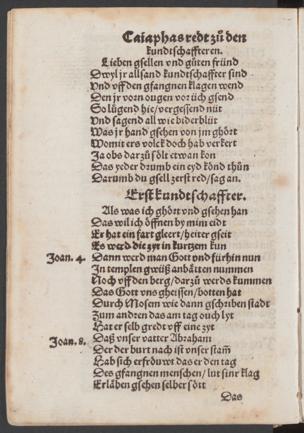 Caiaphas redt zů den
kundtschaffteren.
Lieben gsellen vnd gůten fründ
Dwyl jr allsand kundtschaffter sind
Vnd vff den gfangnen klagen wend
Den jr vorn ougen vor üch gsend
So lůgend hie/ vergessend nüt
Vnd sagend all wie biderblüt
Was jr hand gsehen von jm ghört
Womit ers volck doch hab verkert
Ja obs dar zů sölt etwan kon
Das yeder drumb ein eyd könd thůn
Darumb du gsell zerst red/ sag an.
Erst kundtschaffter.
Als was ich ghört vnd gsehen han
Das wil ich öffnen by mim eidt
Er hat ein fart gleert/ heiter gseit
Es werd die zyt in kurtzem kun
Joan. 4. Dann werd man Gott vnd fürhin nun
In templen gwüß anbätten nummen
Noch vff den berg/ darzů werds kummen
Das Gott vns gheissen/ botten hat
Durch Mosem wie dann gschriben stadt
Zum andren das am tag ouch lyt
Hat er selb gredt vff eine zyt
Joan. 8. Daß vnser vatter Abraham
Der der burt nach ist vnser stam̃
Hab sich erfröuwt das er den tag
Des gfangnen menschen/ lut sinr klag
Erläben gsehen selber sött
Das